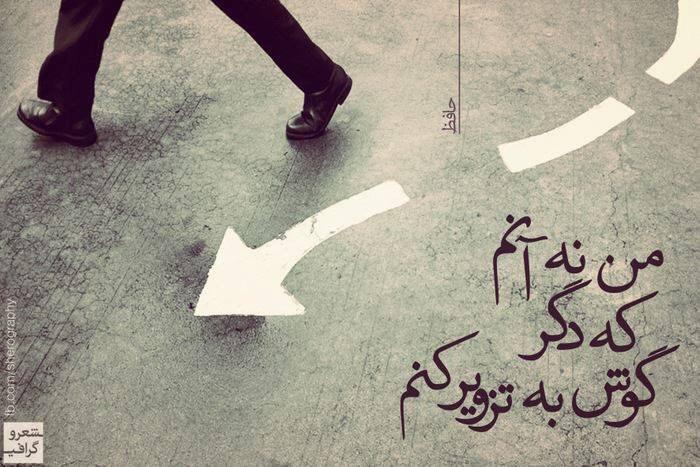 حافظ
من نه آنم
که دگر
گوش به تزویر کنم
fb.com/sherography
شعرو
گرافی